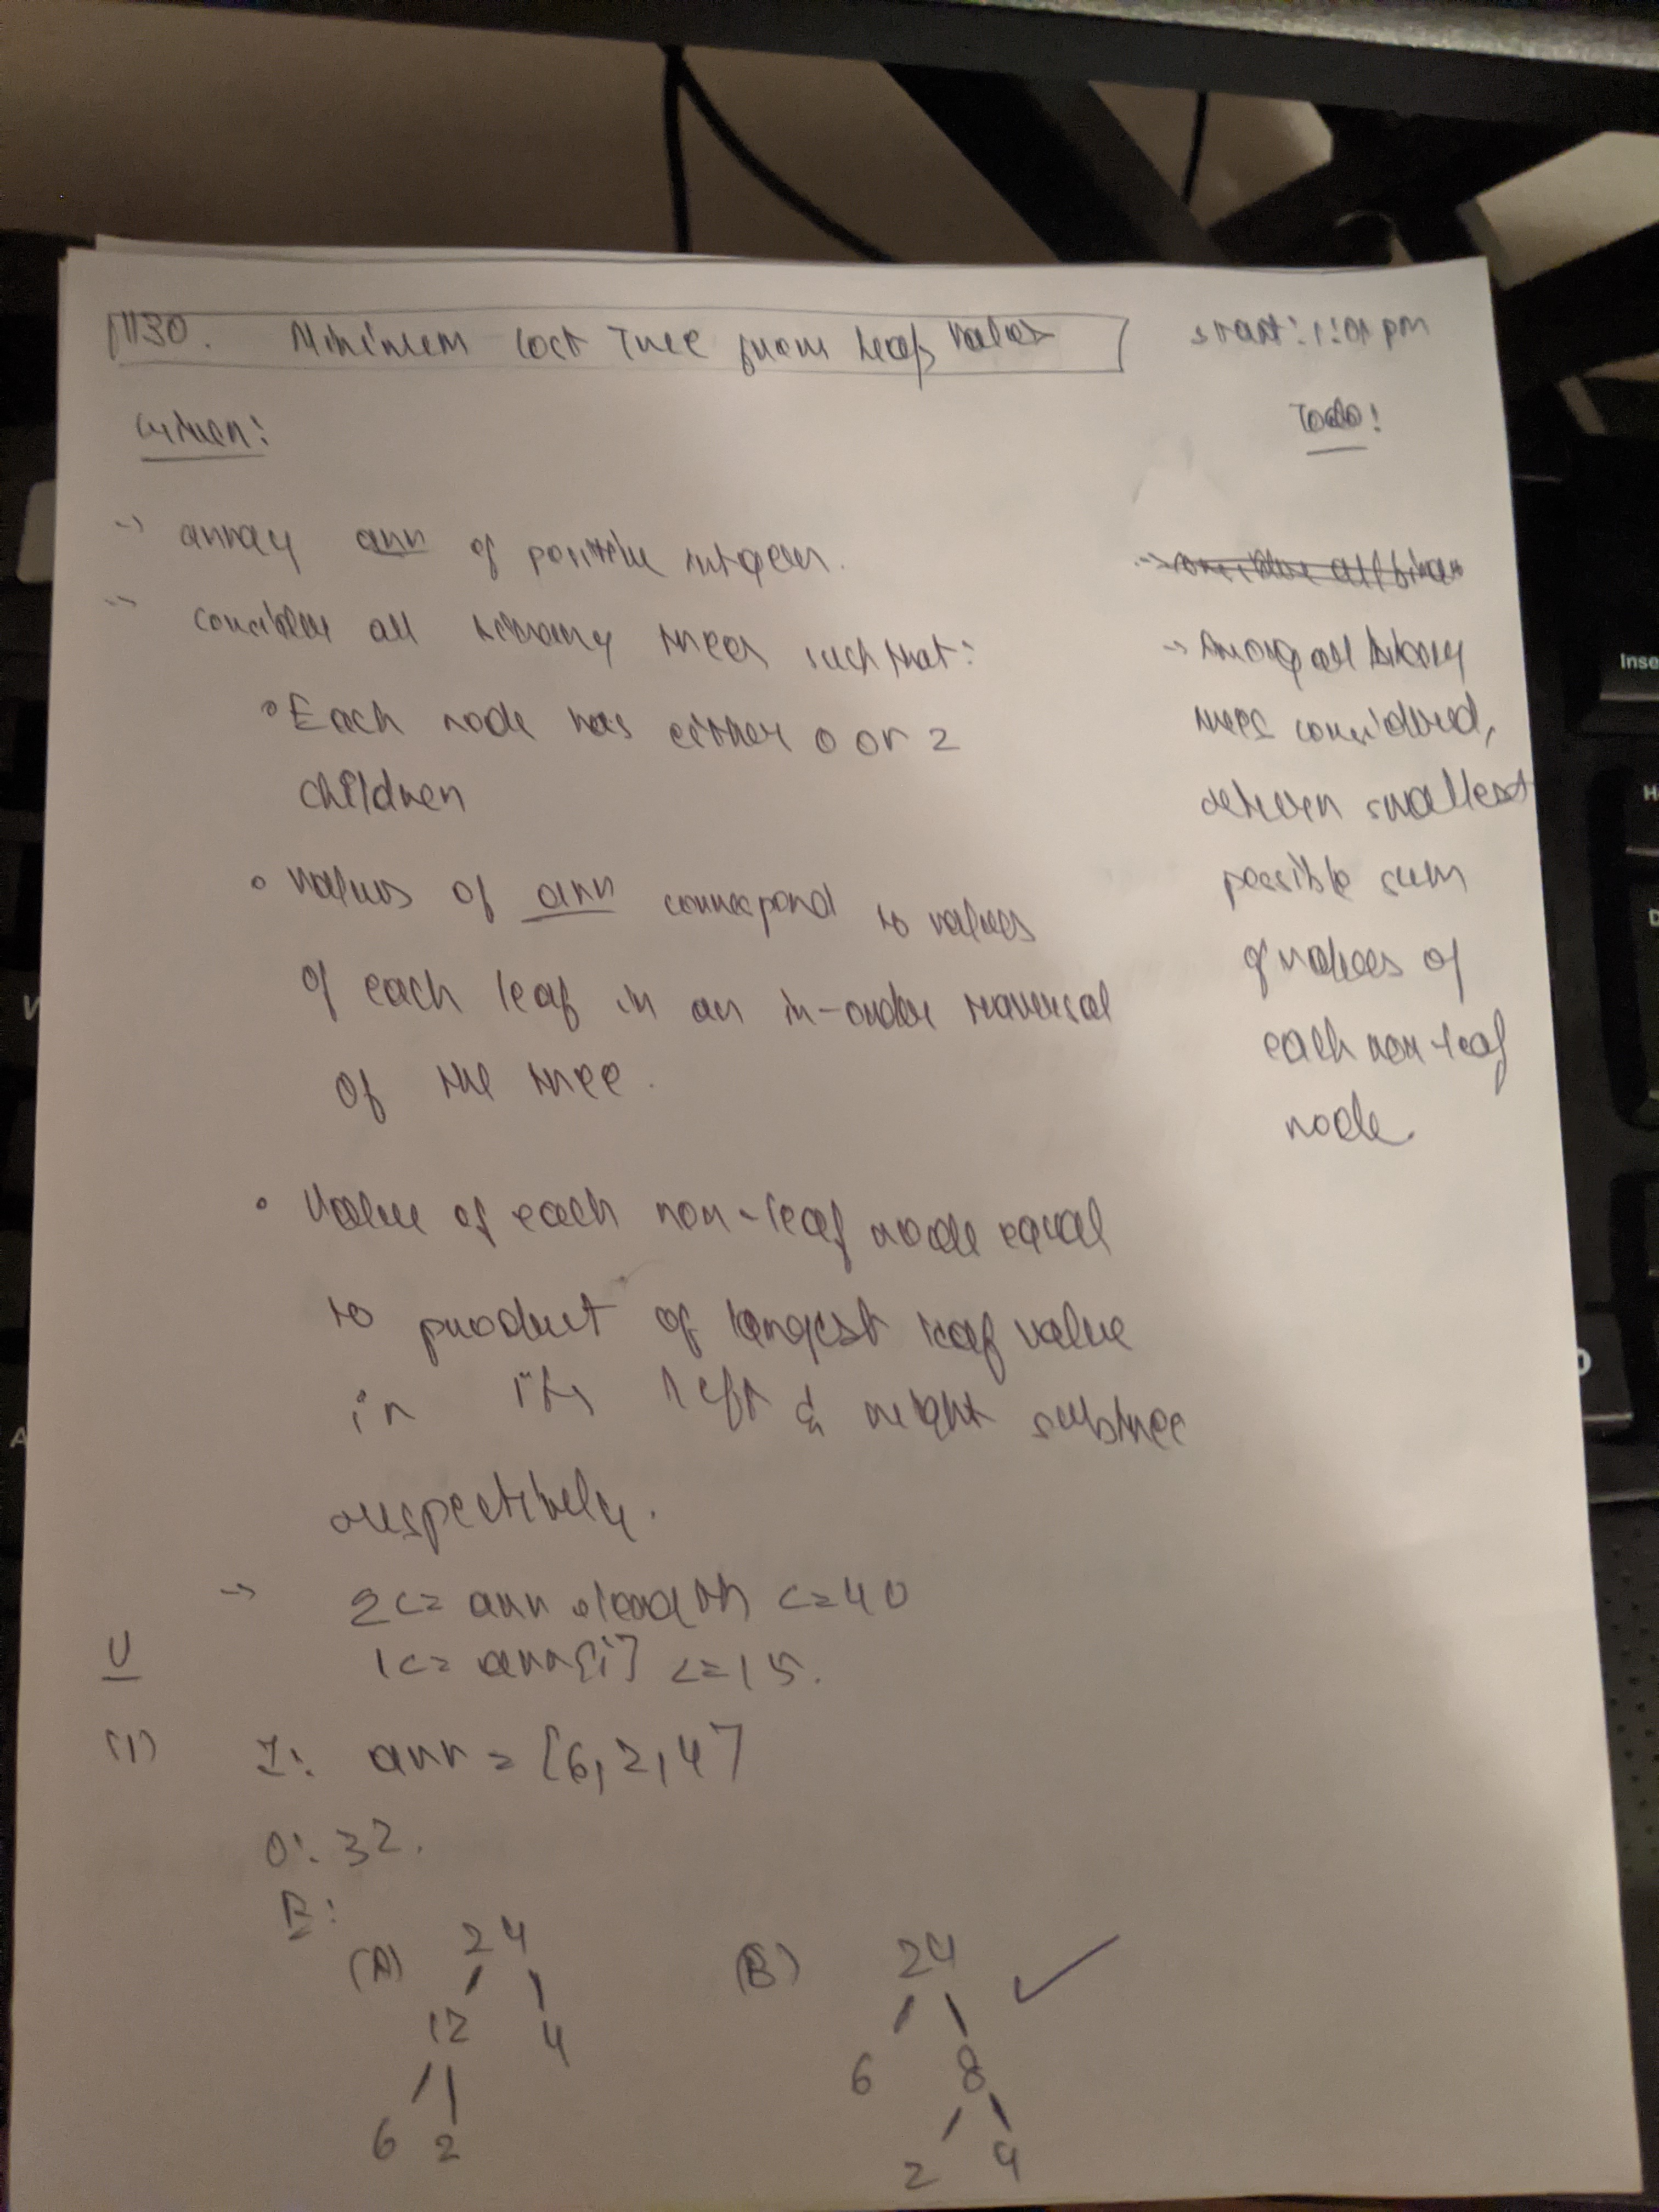 1130. Minimum Cost Tree from Leaf Values
start: 1:01 pm
Given:
Todo:
-> array arr of positive integers.
-> consider all binary trees such that:
• Each node has either 0 or 2
children
• values of arr correspond to values
of each leaf in an in-order traversal
of the tree.
• Value of each non-leaf node equal
to product of largest leaf value
in its left & right subtree
respectively.
-> 2 <= arr.length <= 40
1 <= arr[i] <= 15.
-> consider all binar
-> Among all binary
trees considered,
return smallest
possible sum
of values of
each non-leaf
node.
U
(1) I: arr = [6,2,4]
O: 32.
E:
(A) 24
12 4
6 2
(B) 24
6 8
2 4
Inse